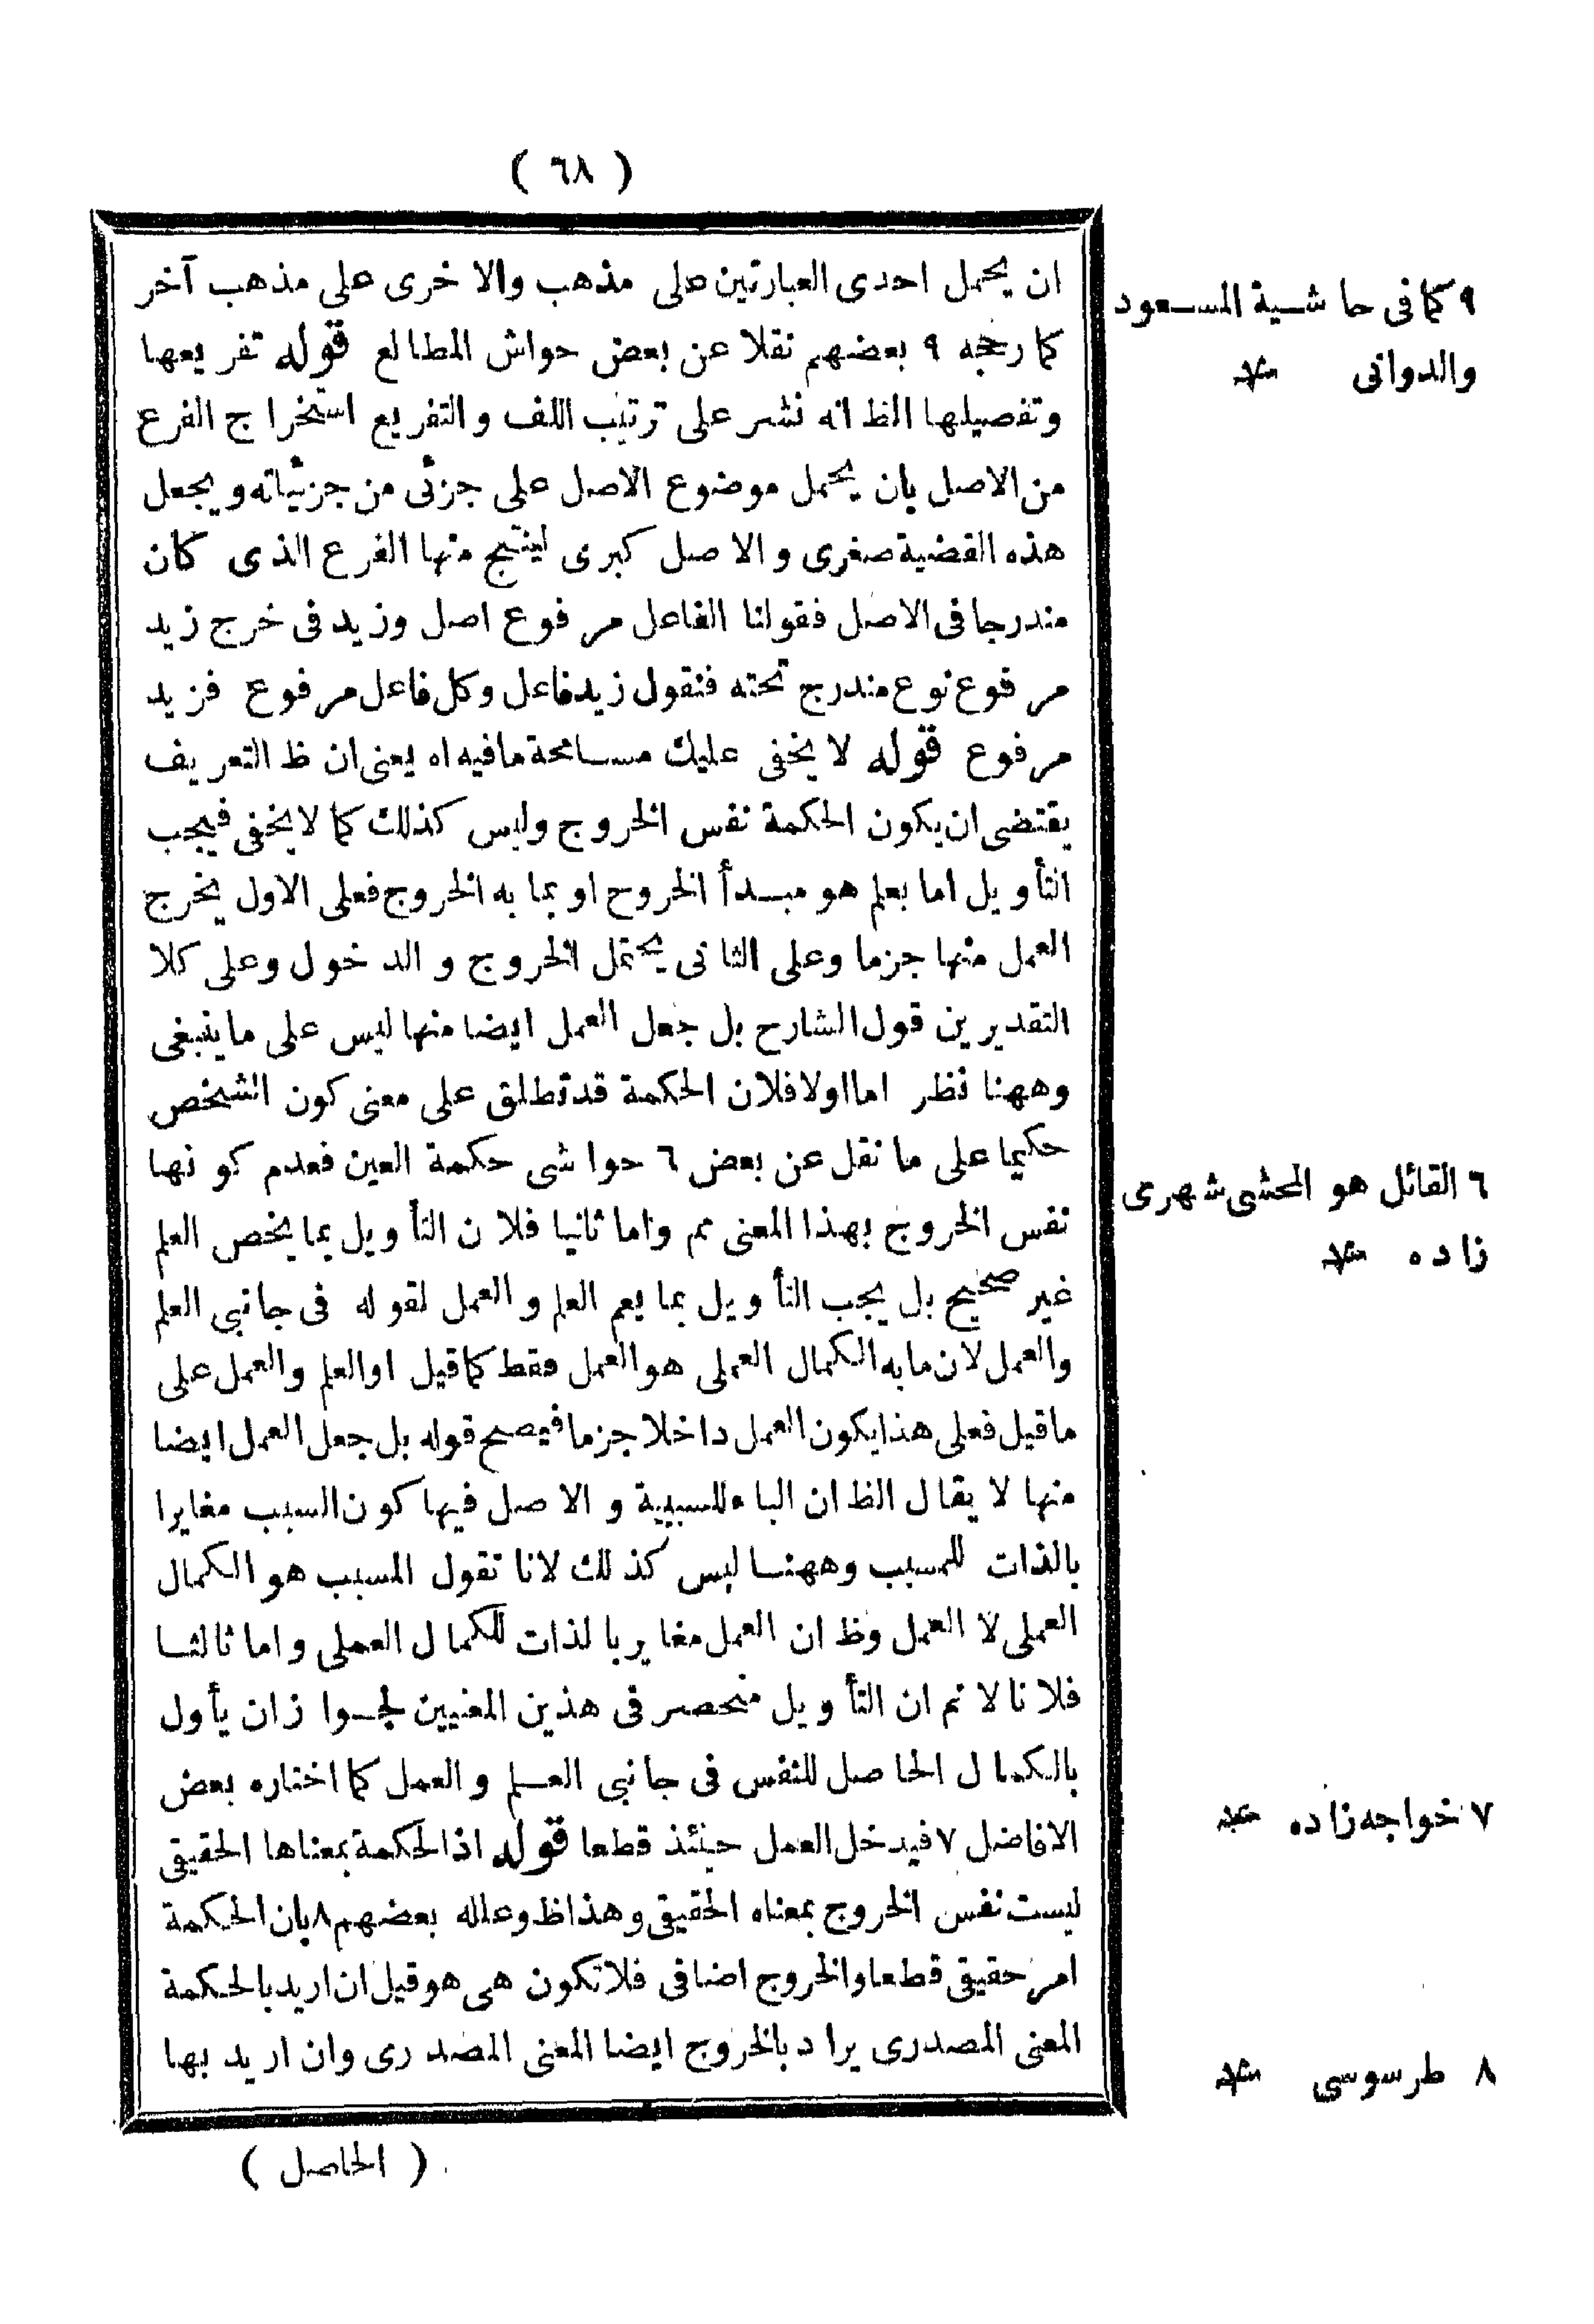 ( ٦٨ )
ان يحمل احدى العبارتين على مذهب والاخرى على مذهب آخر
كما رجحه ٩ بعضهم نقلا عن بعض حواش المطالع قوله تفريعها
وتفصيلها الظ انه نشر على ترتيب اللف والتفريع استخراج الفرع
من الاصل بان يحمل موضوع الاصل على جزئى من جزئياته ويجعل
هذه القضية صغرى والاصل كبرى لينتج منها الفرع الذى كان
مندرجا فى الاصل فقولنا الفاعل مرفوع اصل وزيد فى خرج زيد
مرفوع نوع مندرج تحته فنقول زيد فاعل وكل فاعل مرفوع فزيد
مرفوع قوله لا يخفى عليك مسامحة ما فيه اه يعنى ان ظ التعريف
يقتضى ان يكون الحكمة نفس الخروج وليس كذلك كما لا يخفى فيجب
التأويل اما بعلم هو مبدأ الخروج او بما به الخروج فعلى الاول يخرج
العمل منها جزما وعلى الثانى يحتمل الخروج والدخول وعلى كلا
التقديرين قول الشارح بل جعل العمل ايضا منها ليس على ما ينبغى
وههنا نظر اما اولا فلان الحكمة قد تطلق على معنى كون الشخص
حكيما على ما نقل عن بعض ٦ حواشى حكمة العين فعدم كونها
نفس الخروج بهذا المعنى مم واما ثانيا فلان التأويل بما يخص العلم
غير صحيح بل يجب التأويل بما يعم العلم والعمل لقوله فى جانبى العلم
والعمل لان ما به الكمال العملى هو العمل فقط كما قيل او العلم والعمل على
ما قيل فعلى هذا يكون العمل داخلا جزما فيصح قوله بل جعل العمل ايضا
منها لا يقال الظ ان الباء للسببية والاصل فيها كون السبب مغايرا
بالذات للمسبب وههنا ليس كذلك لانا نقول المسبب هو الكمال
العملى لا العمل وظ ان العمل مغاير بالذات للكمال العملى واما ثالثا
فلانا لا نم ان التأويل منحصر فى هذين المعنيين لجواز ان يأول
بالكمال الحاصل للنفس فى جانبى العلم والعمل كما اختاره بعض
الافاضل ٧ فيدخل العمل حينئذ قطعا قوله اذ الحكمة بمعناها الحقيقى
ليست نفس الخروج بمعناه الحقيقى وهذا ظ وعلله بعضهم ٨ بان الحكمة
امر حقيقى قطعا والخروج اضافى فلا تكون هى هو وقيل ان اريد بالحكمة
المعنى المصدرى يراد بالخروج ايضا المعنى المصدرى وان اريد بها
( الحاصل )
٩ كما فى حاشية المسعود
والدوانى منه
٦ القائل هو المحشى شهرى
زاده منه
٧ خواجه زاده منه
٨ طرسوسى منه